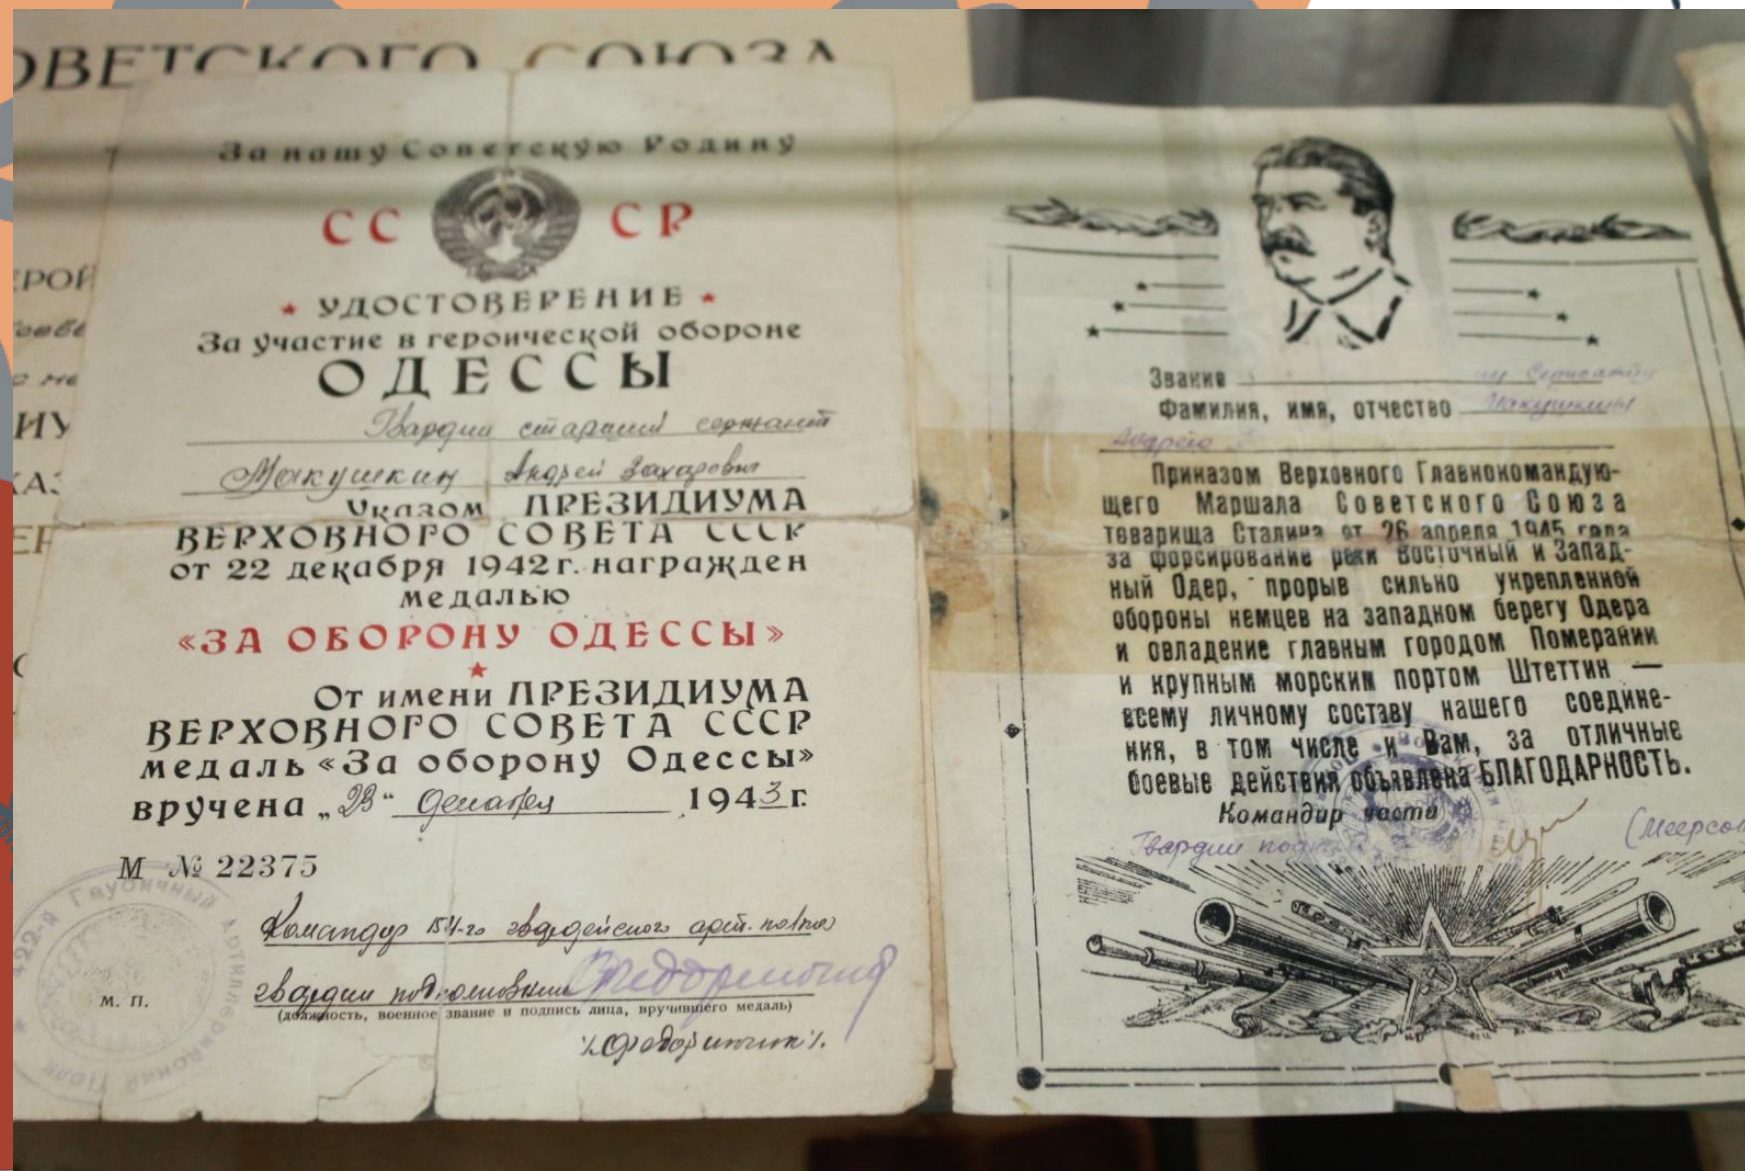 ОВЕТСКОГО СОЮЗА
За нашу Советскую Родину
СС СР
УДОСТОВЕРЕНИЕ
За участие в героической обороне
ОДЕССЫ
Гвардии старший сержант
Макушкин Андрей Захарович
Указом ПРЕЗИДИУМА
ВЕРХОВНОГО СОВЕТА СССР
от 22 декабря 1942 г. награжден
медалью
«ЗА ОБОРОНУ ОДЕССЫ»
От имени ПРЕЗИДИУМА
ВЕРХОВНОГО СОВЕТА СССР
медаль «За оборону Одессы»
вручена „23“ декабря 1943 г.
М № 22375
Командир 154-го гвардейского арт. полка
гвардии подполковник
М. П.
(должность, военное звание и подпись лица, вручившего медаль)
Гаубичный Артиллерийский Полк
РОЙ
ИУ
КАЗ
ЕР
Звание
Фамилия, имя, отчество Макушкин
Андрей
Приказом Верховного Главнокомандую-
щего Маршала Советского Союза
товарища Сталина от 26 апреля 1945 года
за форсирование реки Восточный и Запад-
ный Одер, прорыв сильно укрепленной
обороны немцев на западном берегу Одера
и овладение главным городом Померании
и крупным морским портом Штеттин —
всему личному составу нашего соедине-
ния, в том числе и Вам, за отличные
боевые действия объявлена БЛАГОДАРНОСТЬ.
Командир части
Гвардии